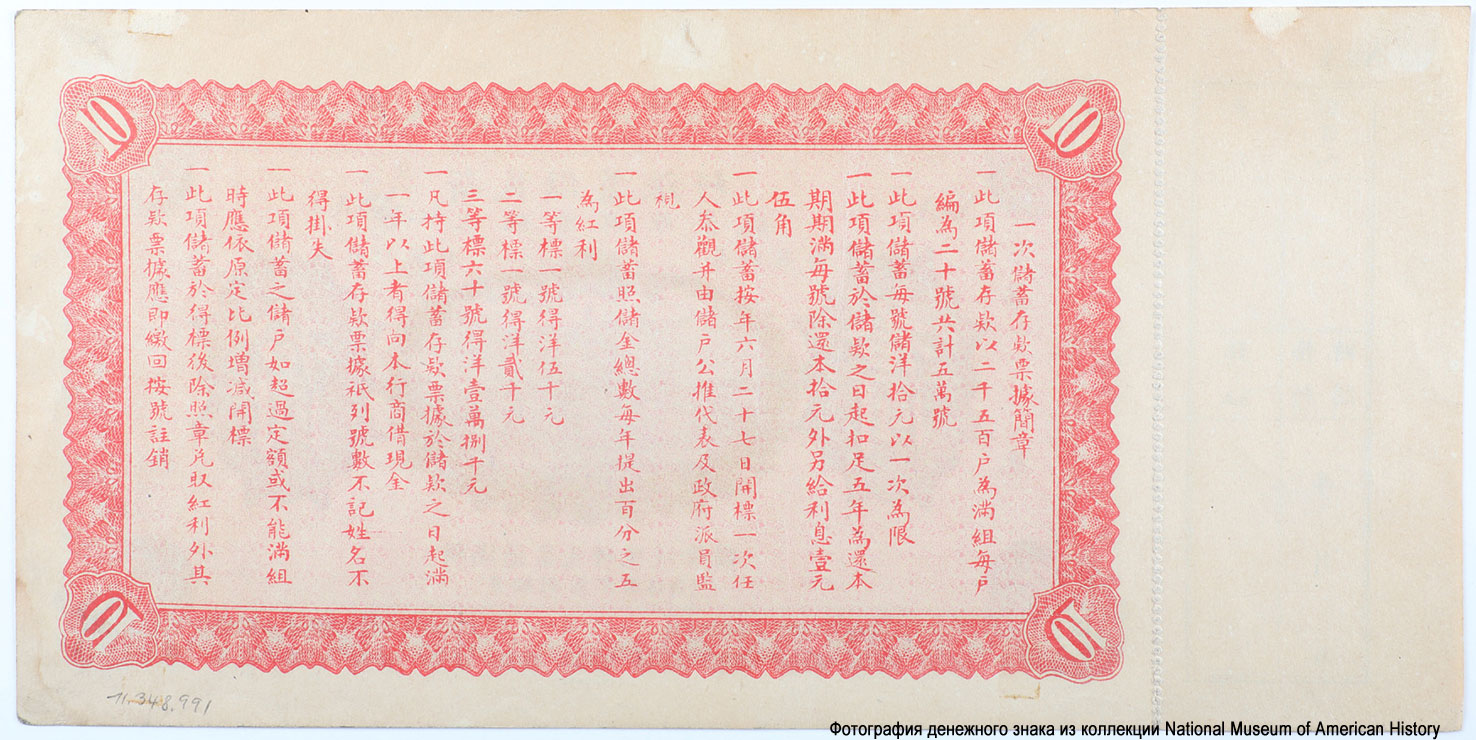 一次儲蓄存款票據簡章
一此項儲蓄存款以二千五百户為滿組每户
編為二十號共計五萬號
一此項儲蓄每號儲洋拾元以一次為限
一此項儲蓄於儲款之日起扣足五年為還本
期期滿每號除還本拾元外另給利息壹元
伍角
一此項儲蓄按年六月二十七日開標一次任
人叅觀并由儲户公推代表及政府派員監
視
一此項儲蓄照儲金總數每年提出百分之五
為紅利
一等標一號得洋伍千元
二等標一號得洋貳千元
三等標六十號得洋壹萬捌千元
一凡持此項儲蓄存款票據於儲款之日起滿
一年以上者得向本行商借現金
一此項儲蓄存款票據祇列號數不記姓名不
得掛失
一此項儲蓄之儲户如超過定額或不能滿組
時應依原定比例增減開標
一此項儲蓄於得標後除照章兑取紅利外其
存款票據應即繳回按號註銷
10
10
10
10
11.348.991
Фотография денежного знака из коллекции National Museum of American History